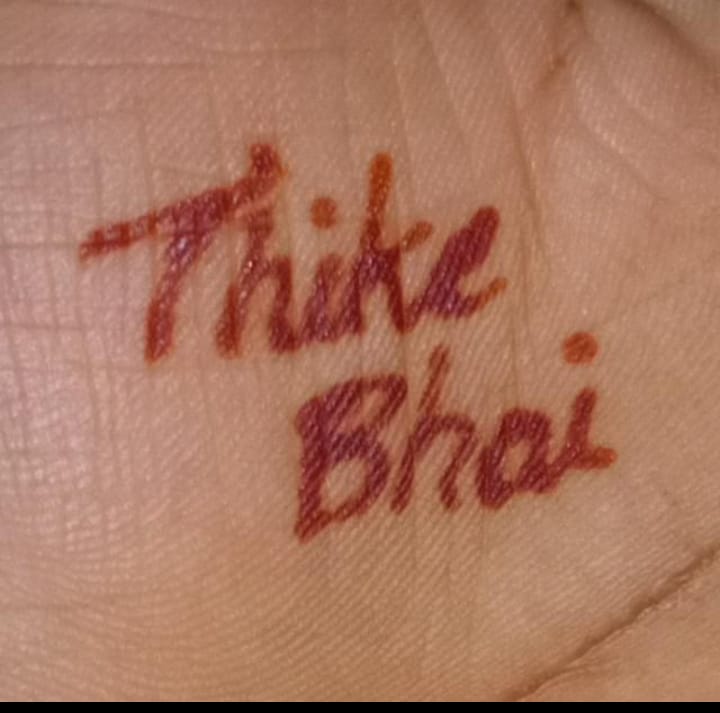 Thike
Bhai